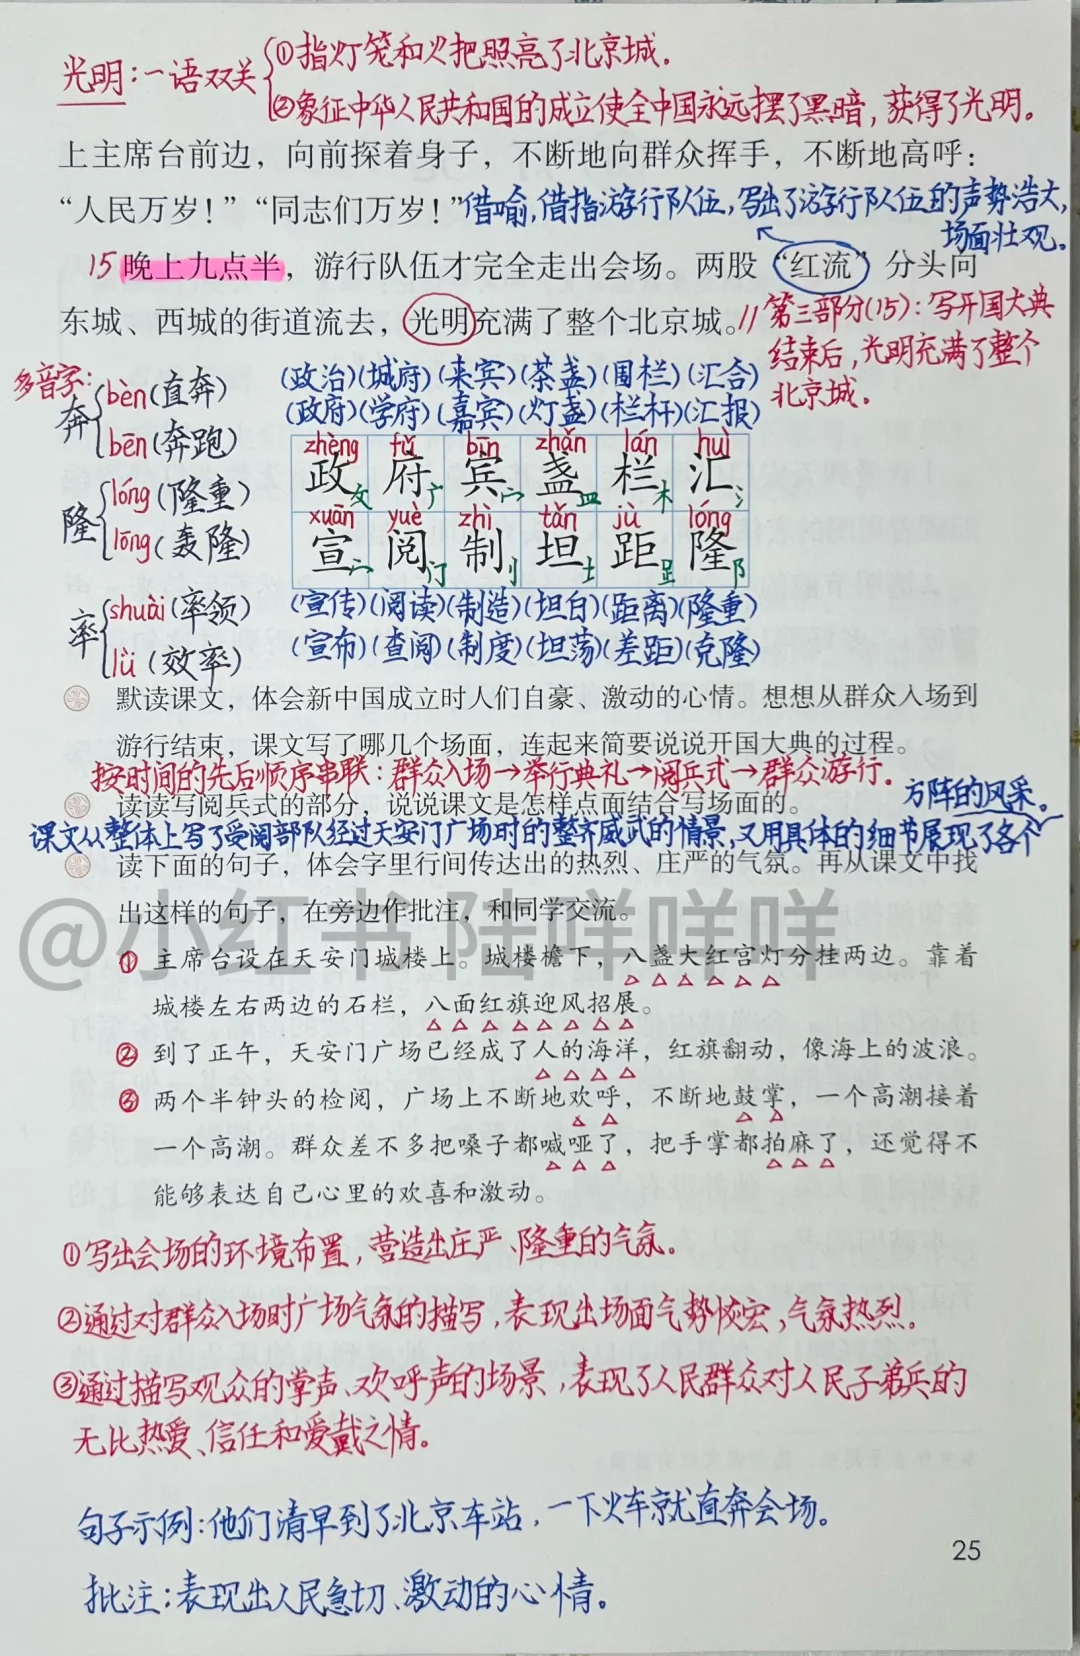 光明：一语双关 ①指灯笼和火把照亮了北京城.
②象征中华人民共和国的成立使全中国永远摆了黑暗，获得了光明。
上主席台前边，向前探着身子，不断地向群众挥手，不断地高呼：
“人民万岁！”“同志们万岁！”借喻,借指游行队伍,写出了游行队伍的声势浩大,
场面壮观。
15 晚上九点半，游行队伍才完全走出会场。两股“红流”分头向
东城、西城的街道流去，光明充满了整个北京城。// 第三部分(15)：写开国大典
结束后，光明充满了整个
北京城.
多音字：
奔 bèn(直奔)
bēn(奔跑)
隆 lóng(隆重)
lōng(轰隆)
率 shuài(率领)
lǜ(效率)
(政治)(城府)(来宾)(茶盏)(围栏)(汇合)
(政府)(学府)(嘉宾)(灯盏)(栏杆)(汇报)
zhèng fǔ bīn zhǎn lán huì
政攵 府广 宾宀 盏皿 栏木 汇氵
xuān yuè zhì tǎn jù lóng
宣宀 阅门 制刂 坦土 距⻊ 隆阝
(宣传)(阅读)(制造)(坦白)(距离)(隆重)
(宣布)(查阅)(制度)(坦荡)(差距)(克隆)
默读课文，体会新中国成立时人们自豪、激动的心情。想想从群众入场到
游行结束，课文写了哪几个场面，连起来简要说说开国大典的过程。
按时间的先后顺序串联：群众入场→举行典礼→阅兵式→群众游行.
读读写阅兵式的部分，说说课文是怎样点面结合写场面的。
课文从整体上写了受阅部队经过天安门广场时的整齐威武的情景,又用具体的细节展现了各个
方阵的风采。
读下面的句子，体会字里行间传达出的热烈、庄严的气氛。再从课文中找
出这样的句子，在旁边作批注，和同学交流。
@小红书 陆咩咩咩
① 主席台设在天安门城楼上。城楼檐下，八盏大红宫灯分挂两边。靠着
城楼左右两边的石栏，八面红旗迎风招展。
② 到了正午，天安门广场已经成了人的海洋，红旗翻动，像海上的波浪。
③ 两个半钟头的检阅，广场上不断地欢呼，不断地鼓掌，一个高潮接着
一个高潮。群众差不多把嗓子都喊哑了，把手掌都拍麻了，还觉得不
能够表达自己心里的欢喜和激动。
①写出会场的环境布置，营造出庄严、隆重的气氛。
②通过对群众入场时广场气氛的描写，表现出场面气势恢宏，气氛热烈。
③通过描写观众的掌声、欢呼声的场景，表现了人民群众对人民子弟兵的
无比热爱、信任和爱戴之情。
句子示例：他们清早到了北京车站，一下火车就直奔会场。
批注：表现出人民急切、激动的心情。
25